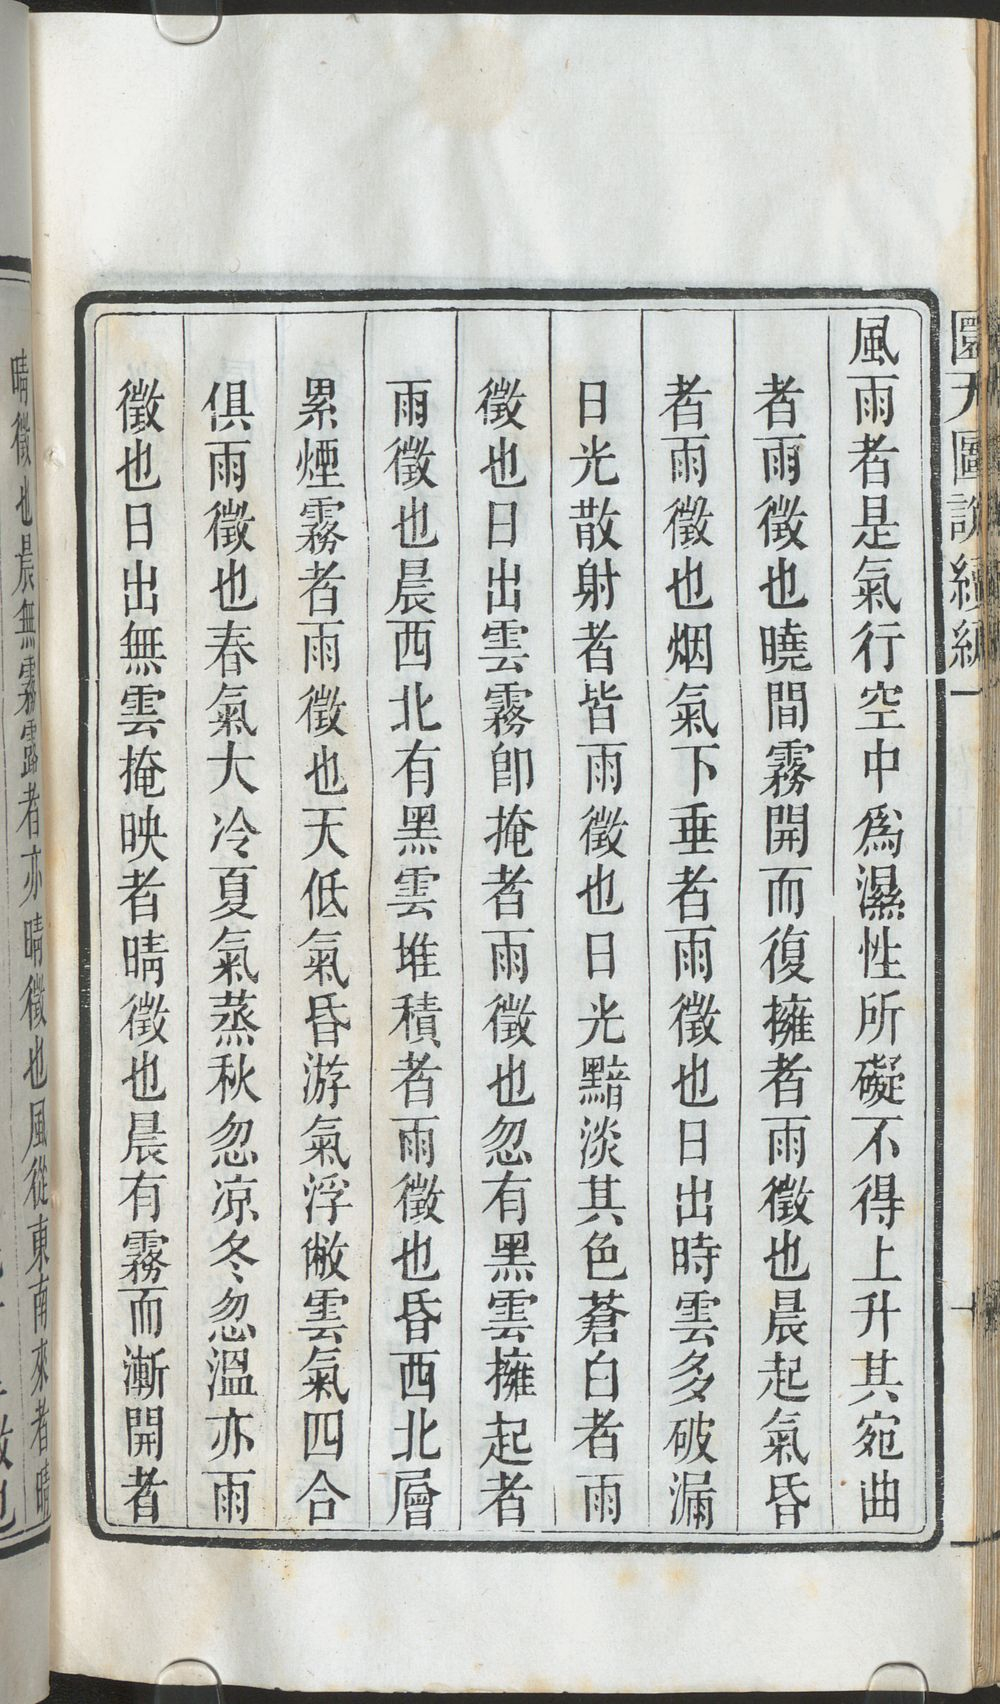 圜天圖說續編
風雨者是氣行空中爲濕性所礙不得上升其宛曲
者雨徵也曉間霧開而復擁者雨徵也晨起氣昏
者雨徵也烟氣下垂者雨徵也日出時雲多破漏
日光散射者皆雨徵也日光黯淡其色蒼白者雨
徵也日出雲霧卽掩者雨徵也忽有黑雲擁起者
雨徵也晨西北有黑雲堆積者雨徵也昏西北層
累煙霧者雨徵也天低氣昏游氣浮敝雲氣四合
俱雨徵也春氣大冷夏氣蒸秋忽凉冬忽溫亦雨
徵也日出無雲掩映者晴徵也晨有霧而漸開者
晴徵也晨無霧露者亦晴徵也風從東南來者晴